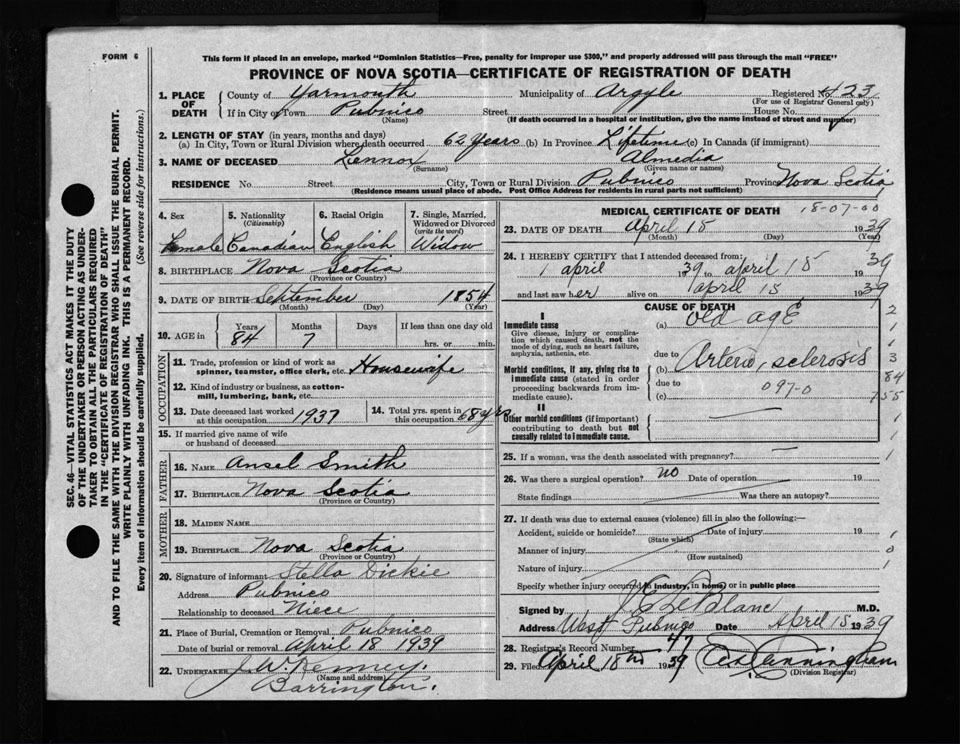 FORM 6
This form if placed in an envelope, marked "Dominion Statistics—Free, penalty for improper use $300," and properly addressed will pass through the mail "FREE"
PROVINCE OF NOVA SCOTIA—CERTIFICATE OF REGISTRATION OF DEATH
SEC. 46—VITAL STATISTICS ACT MAKES IT THE DUTY
OF THE UNDERTAKER OR PERSON ACTING AS UNDER-
TAKER TO OBTAIN ALL THE PARTICULARS REQUIRED
IN THE "CERTIFICATE OF REGISTRATION OF DEATH"
AND TO FILE THE SAME WITH THE DIVISION REGISTRAR WHO SHALL ISSUE THE BURIAL PERMIT.
WRITE PLAINLY WITH UNFADING INK. THIS IS A PERMANENT RECORD.
Every item of information should be carefully supplied. (See reverse side for instructions.)
1. PLACE OF DEATH
County of Yarmouth Municipality of Argyle Registered No. 423
(For use of Registrar General only)
If in City or Town Pubnico Street House No.
(Name) (If death occurred in a hospital or institution, give the name instead of street and number)
2. LENGTH OF STAY (in years, months and days)
(a) In City, Town or Rural Division where death occurred 62 years (b) In Province Lifetime (c) In Canada (if immigrant)
3. NAME OF DECEASED Lennox Almedia
(Surname) (Given name or names)
RESIDENCE No. Street City, Town or Rural Division Pubnico Province Nova Scotia
(Residence means usual place of abode. Post Office Address for residents in rural parts not sufficient)
4. Sex
Female
5. Nationality
(Citizenship)
Canadian
6. Racial Origin
English
7. Single, Married,
Widowed or Divorced
(write the word)
Widow
8. BIRTHPLACE Nova Scotia
(Province or Country)
9. DATE OF BIRTH September 1854
(Month) (Day) (Year)
10. AGE in
Years Months Days If less than one day old
84 7 hrs. or min.
OCCUPATION
11. Trade, profession or kind of work as
spinner, teamster, office clerk, etc. Housewife
12. Kind of industry or business, as cotton-
mill, lumbering, bank, etc.
13. Date deceased last worked
at this occupation 1937
14. Total yrs. spent in
this occupation 68 yrs
15. If married give name of wife
or husband of deceased
FATHER
16. NAME Ansel Smith
17. BIRTHPLACE Nova Scotia
(Province or Country)
MOTHER
18. MAIDEN NAME
19. BIRTHPLACE Nova Scotia
(Province or Country)
20. Signature of informant Stella Dickie
Address Pubnico
Relationship to deceased Niece
21. Place of Burial, Cremation or Removal Pubnico
Date of burial or removal April 18 1939
22. UNDERTAKER J. W. Kenney.
(Name and address)
Barrington.
MEDICAL CERTIFICATE OF DEATH 18-07-00
23. DATE OF DEATH April 15 1939
(Month) (Day) (Year)
24. I HEREBY CERTIFY that I attended deceased from:
1 april 1939 to april 15 1939
and last saw her alive on april 15 1939
CAUSE OF DEATH
I
Immediate cause
Give disease, injury or complica-
tion which caused death, not the
mode of dying, such as heart failure,
asphyxia, asthenia, etc.
(a) old age
due to
Morbid conditions, if any, giving rise to
immediate cause (stated in order
proceeding backwards from im-
mediate cause).
(b) Arterio, sclerosis
due to 097-0
(c)
II
Other morbid conditions (if important)
contributing to death but not
causally related to immediate cause.
1
2
1
1
3
84
755
1
1
1
25. If a woman, was the death associated with pregnancy?
26. Was there a surgical operation? no Date of operation 19
State findings Was there an autopsy?
27. If death was due to external causes (violence) fill in also the following:—
Accident, suicide or homicide? Date of injury 19
(State which)
Manner of injury
(How sustained)
Nature of injury
1
0
1
Specify whether injury occurred in industry, in home, or in public place
Signed by J. E. LeBlanc M.D.
Address West Pubnico Date April 15 1939
28. Registrar's Record Number 47
29. Filed April 18th 1939
(Division Registrar)